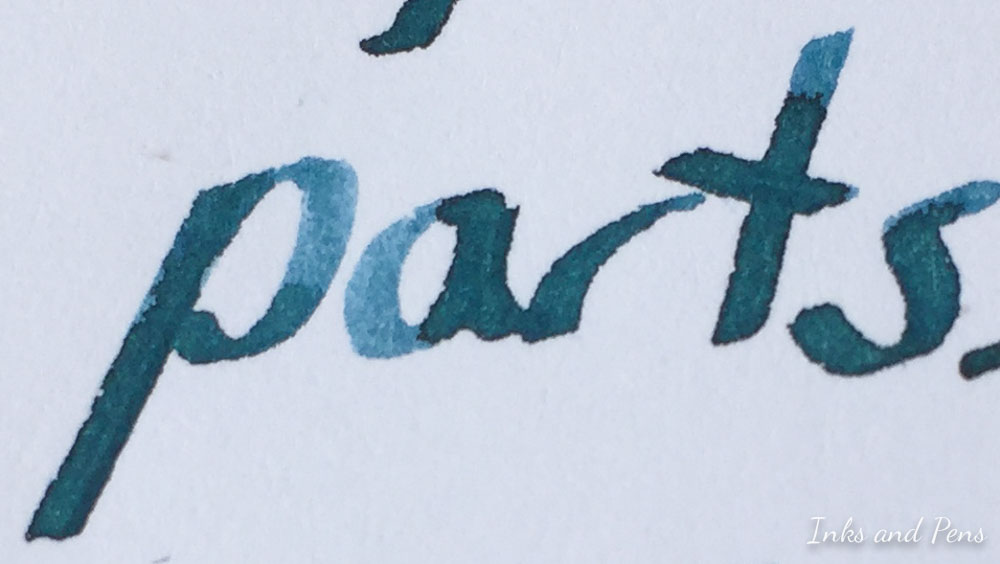 parts.
Inks and Pens